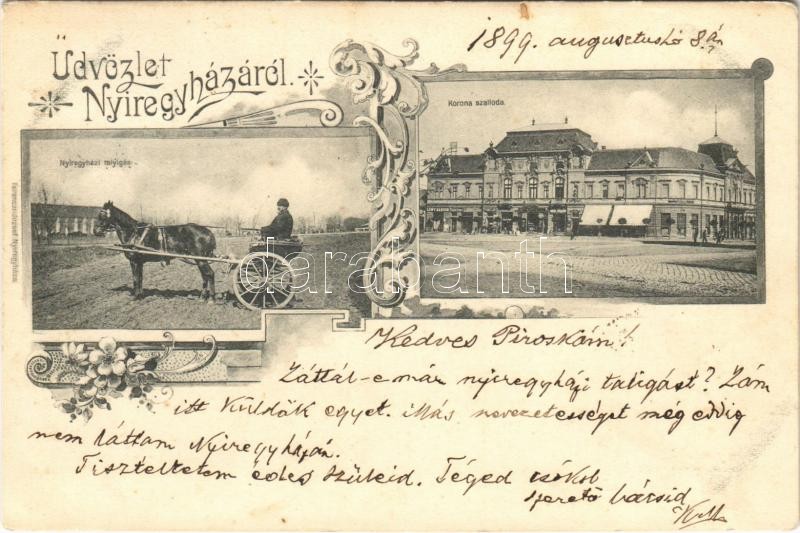 1899. augusztushó 8án
Üdvözlet
Nyiregyházáról.
Korona szálloda.
Nyiregyházi talyigás
darabanth
Kedves Piroskám!
Láttál-e már nyiregyházi taligást? Lám
itt küldök egyet. Más nevezetességet még eddig
nem láttam Nyiregyházán.
Tiszteltetem édes szüleid. Téged csókol
szerető bátyád